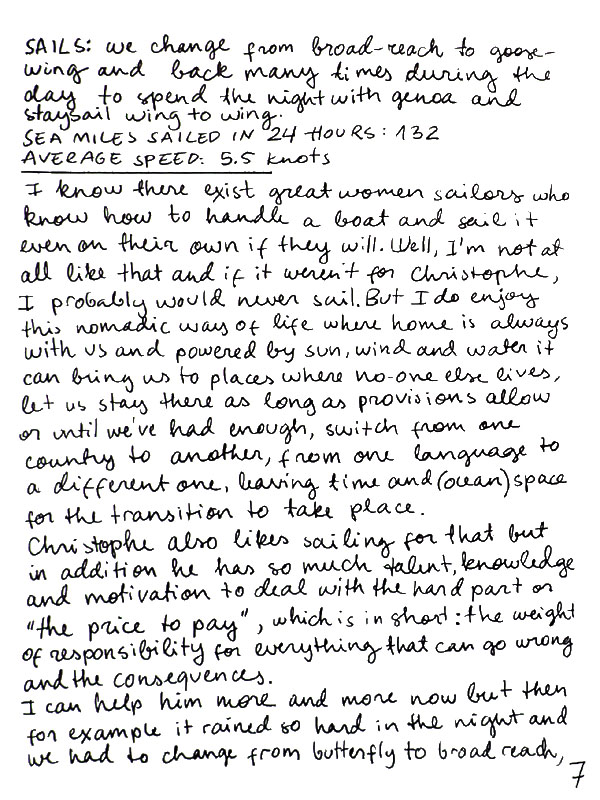 SAILS: we change from broad-reach to goose-
wing and back many times during the
day to spend the night with genoa and
staysail wing to wing.
SEA MILES SAILED IN 24 HOURS: 132
AVERAGE SPEED: 5.5 knots
I know there exist great women sailors who
know how to handle a boat and sail it
even on their own if they will. Well, I'm not at
all like that and if it weren't for Christophe,
I probably would never sail. But I do enjoy
this nomadic way of life where home is always
with us and powered by sun, wind and water it
can bring us to places where no-one else lives,
let us stay there as long as provisions allow
or until we've had enough, switch from one
country to another, from one language to
a different one, leaving time and (ocean) space
for the transition to take place.
Christophe also likes sailing for that but
in addition he has so much talent, knowledge
and motivation to deal with the hard part or
"the price to pay", which is in short: the weight
of responsibility for everything that can go wrong
and the consequences.
I can help him more and more now but then
for example it rained so hard in the night and
we had to change from butterfly to broad reach,
7